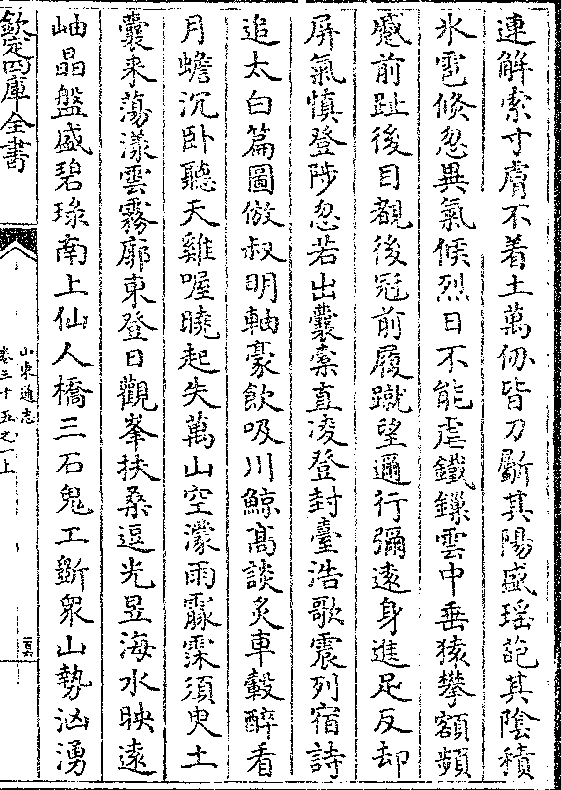 連解索寸膚不着土萬仞皆刀斸其陽盛瑶葩其陰積
氷雹倐忽異氣候烈日不能虐鐵鏁雲中垂猿攀額頻
蹙前趾後目覩後冠前履蹴望邇行彌遠身進足反却
屏氣慎登陟忽若出囊槖直凌登封臺浩歌震列宿詩
追太白篇圖倣叔明軸豪飲吸川鯨髙談炙車轂醉看
月蟾沉卧聽天雞喔曉起失萬山空濛雨霡霂須臾土
囊来蕩漾雲霧廓東登日觀峯扶桑逗光昱海水映遠
岫晶盤盛碧琭南上仙人橋三石鬼工斵衆山勢洶湧
欽定四庫全書
山東通志
卷三十五之一上